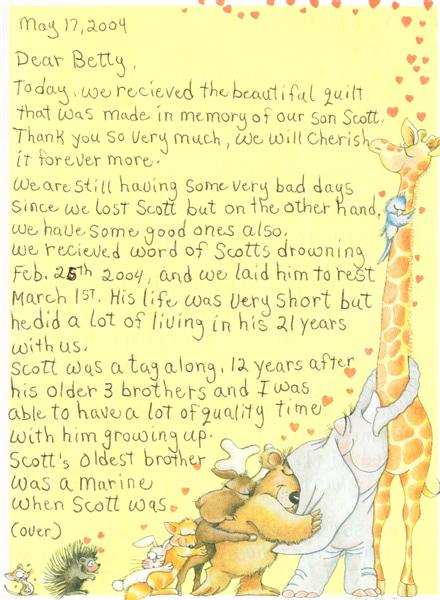 May 17, 2004
Dear Betty,
Today, we recieved the beautiful quilt
that was made in memory of our son Scott.
Thank you so very much, we will cherish
it forever more.
We are still having some very bad days
since we lost Scott but on the other hand,
we have some good ones also.
We recieved word of Scotts drowning
Feb. 25th 2004, and we laid him to rest
March 1st. His life was very short but
he did a lot of living in his 21 years
with us.
Scott was a tag along, 12 years after
his older 3 brothers and I was
able to have a lot of quality time
with him growing up.
Scott's oldest brother
was a Marine
when Scott was
(over)